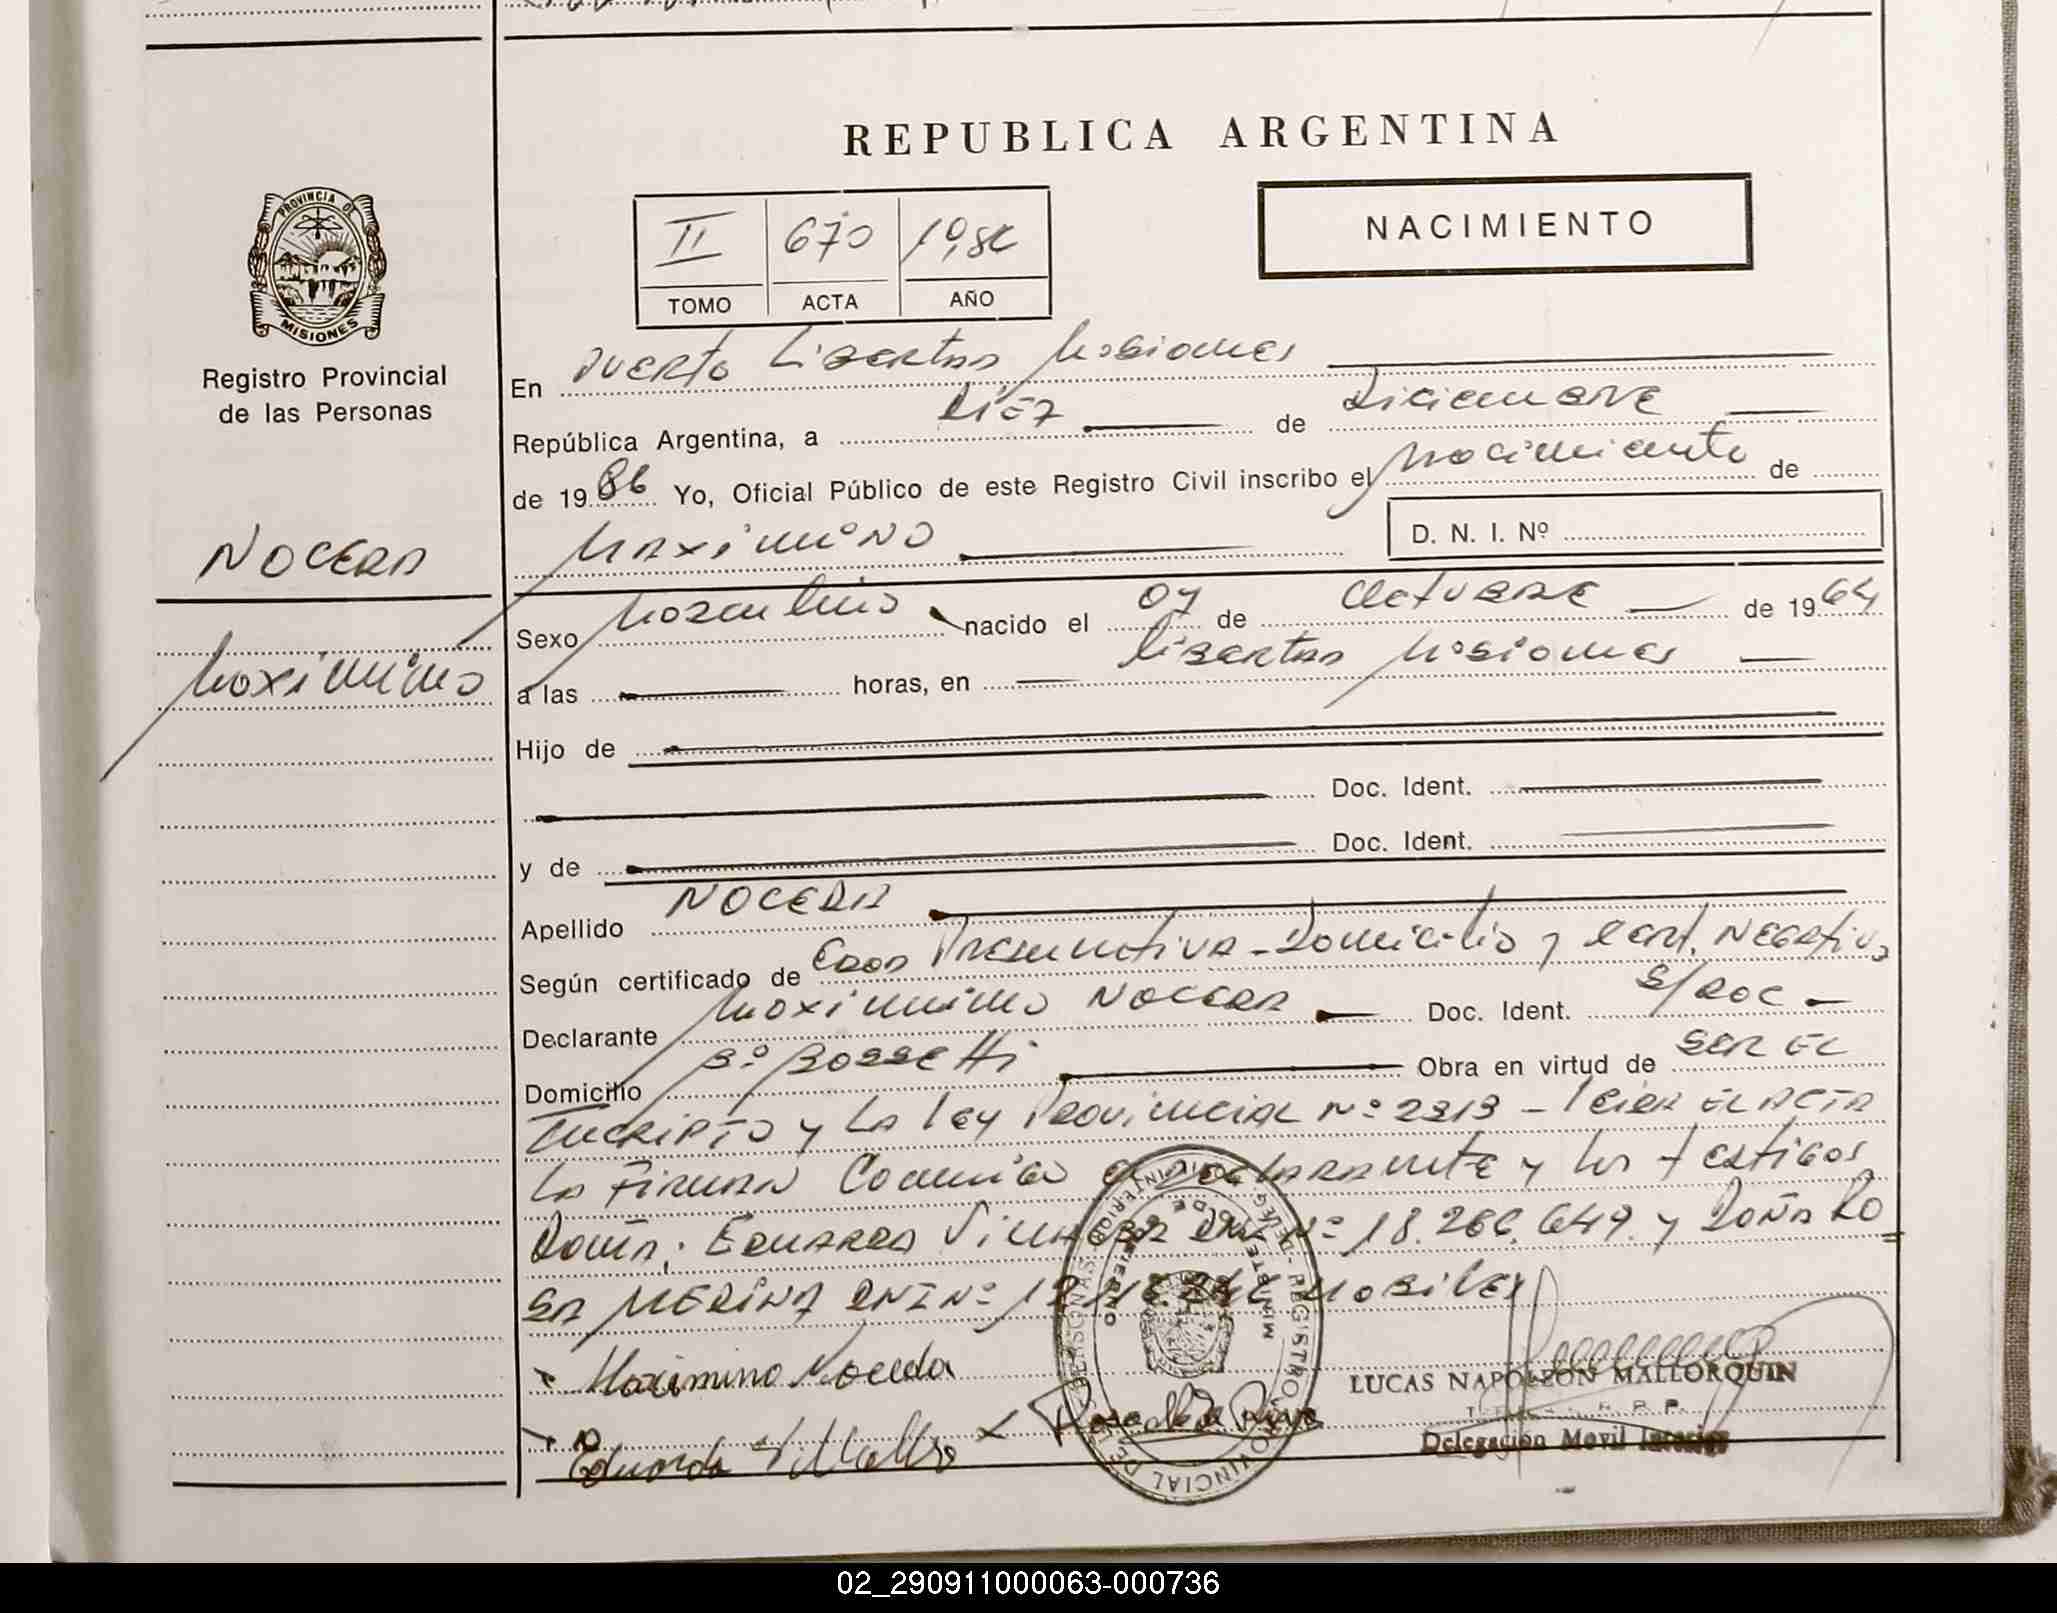 REPUBLICA ARGENTINA
PROVINCIA DE
MISIONES
Registro Provincial
de las Personas
NOCERA
Maximino
II 670 1986
TOMO ACTA AÑO
NACIMIENTO
En Puerto Libertad Misiones
República Argentina, a Diez de Diciembre
de 1986 Yo, Oficial Público de este Registro Civil inscribo el Nacimiento de
Maximino D. N. I. Nº
Sexo Masculino nacido el 07 de Octubre de 1964
a las horas, en Libertad Misiones
Hijo de
Doc. Ident.
y de Doc. Ident.
Apellido NOCERA
Según certificado de Edad Presuntiva - Domicilio y Cert. Negativo
Declarante Maximino Nocera Doc. Ident. S/DOC -
Domicilio Bº Bossetti Obra en virtud de SER EL
Incripto y La Ley Provincial Nº 2313 - Leida el Acta
La Firman Conmigo el Declarante y los testigos
Doña: Eduarda DNI Nº 18.266.649. y Doña Ro=
sa Merina DNI Nº Mobiles
Maximino
Eduarda
Rosa
LUCAS NAPOLEON MALLORQUIN
Delegación Movil
REGISTRO PROVINCIAL DE LAS PERSONAS
02_290911000063-000736